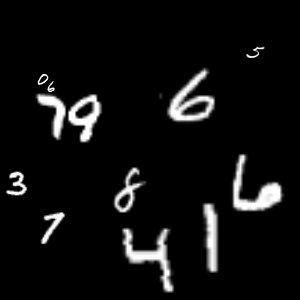 5
0 6
7 9 6
3 8 6
7 4 1